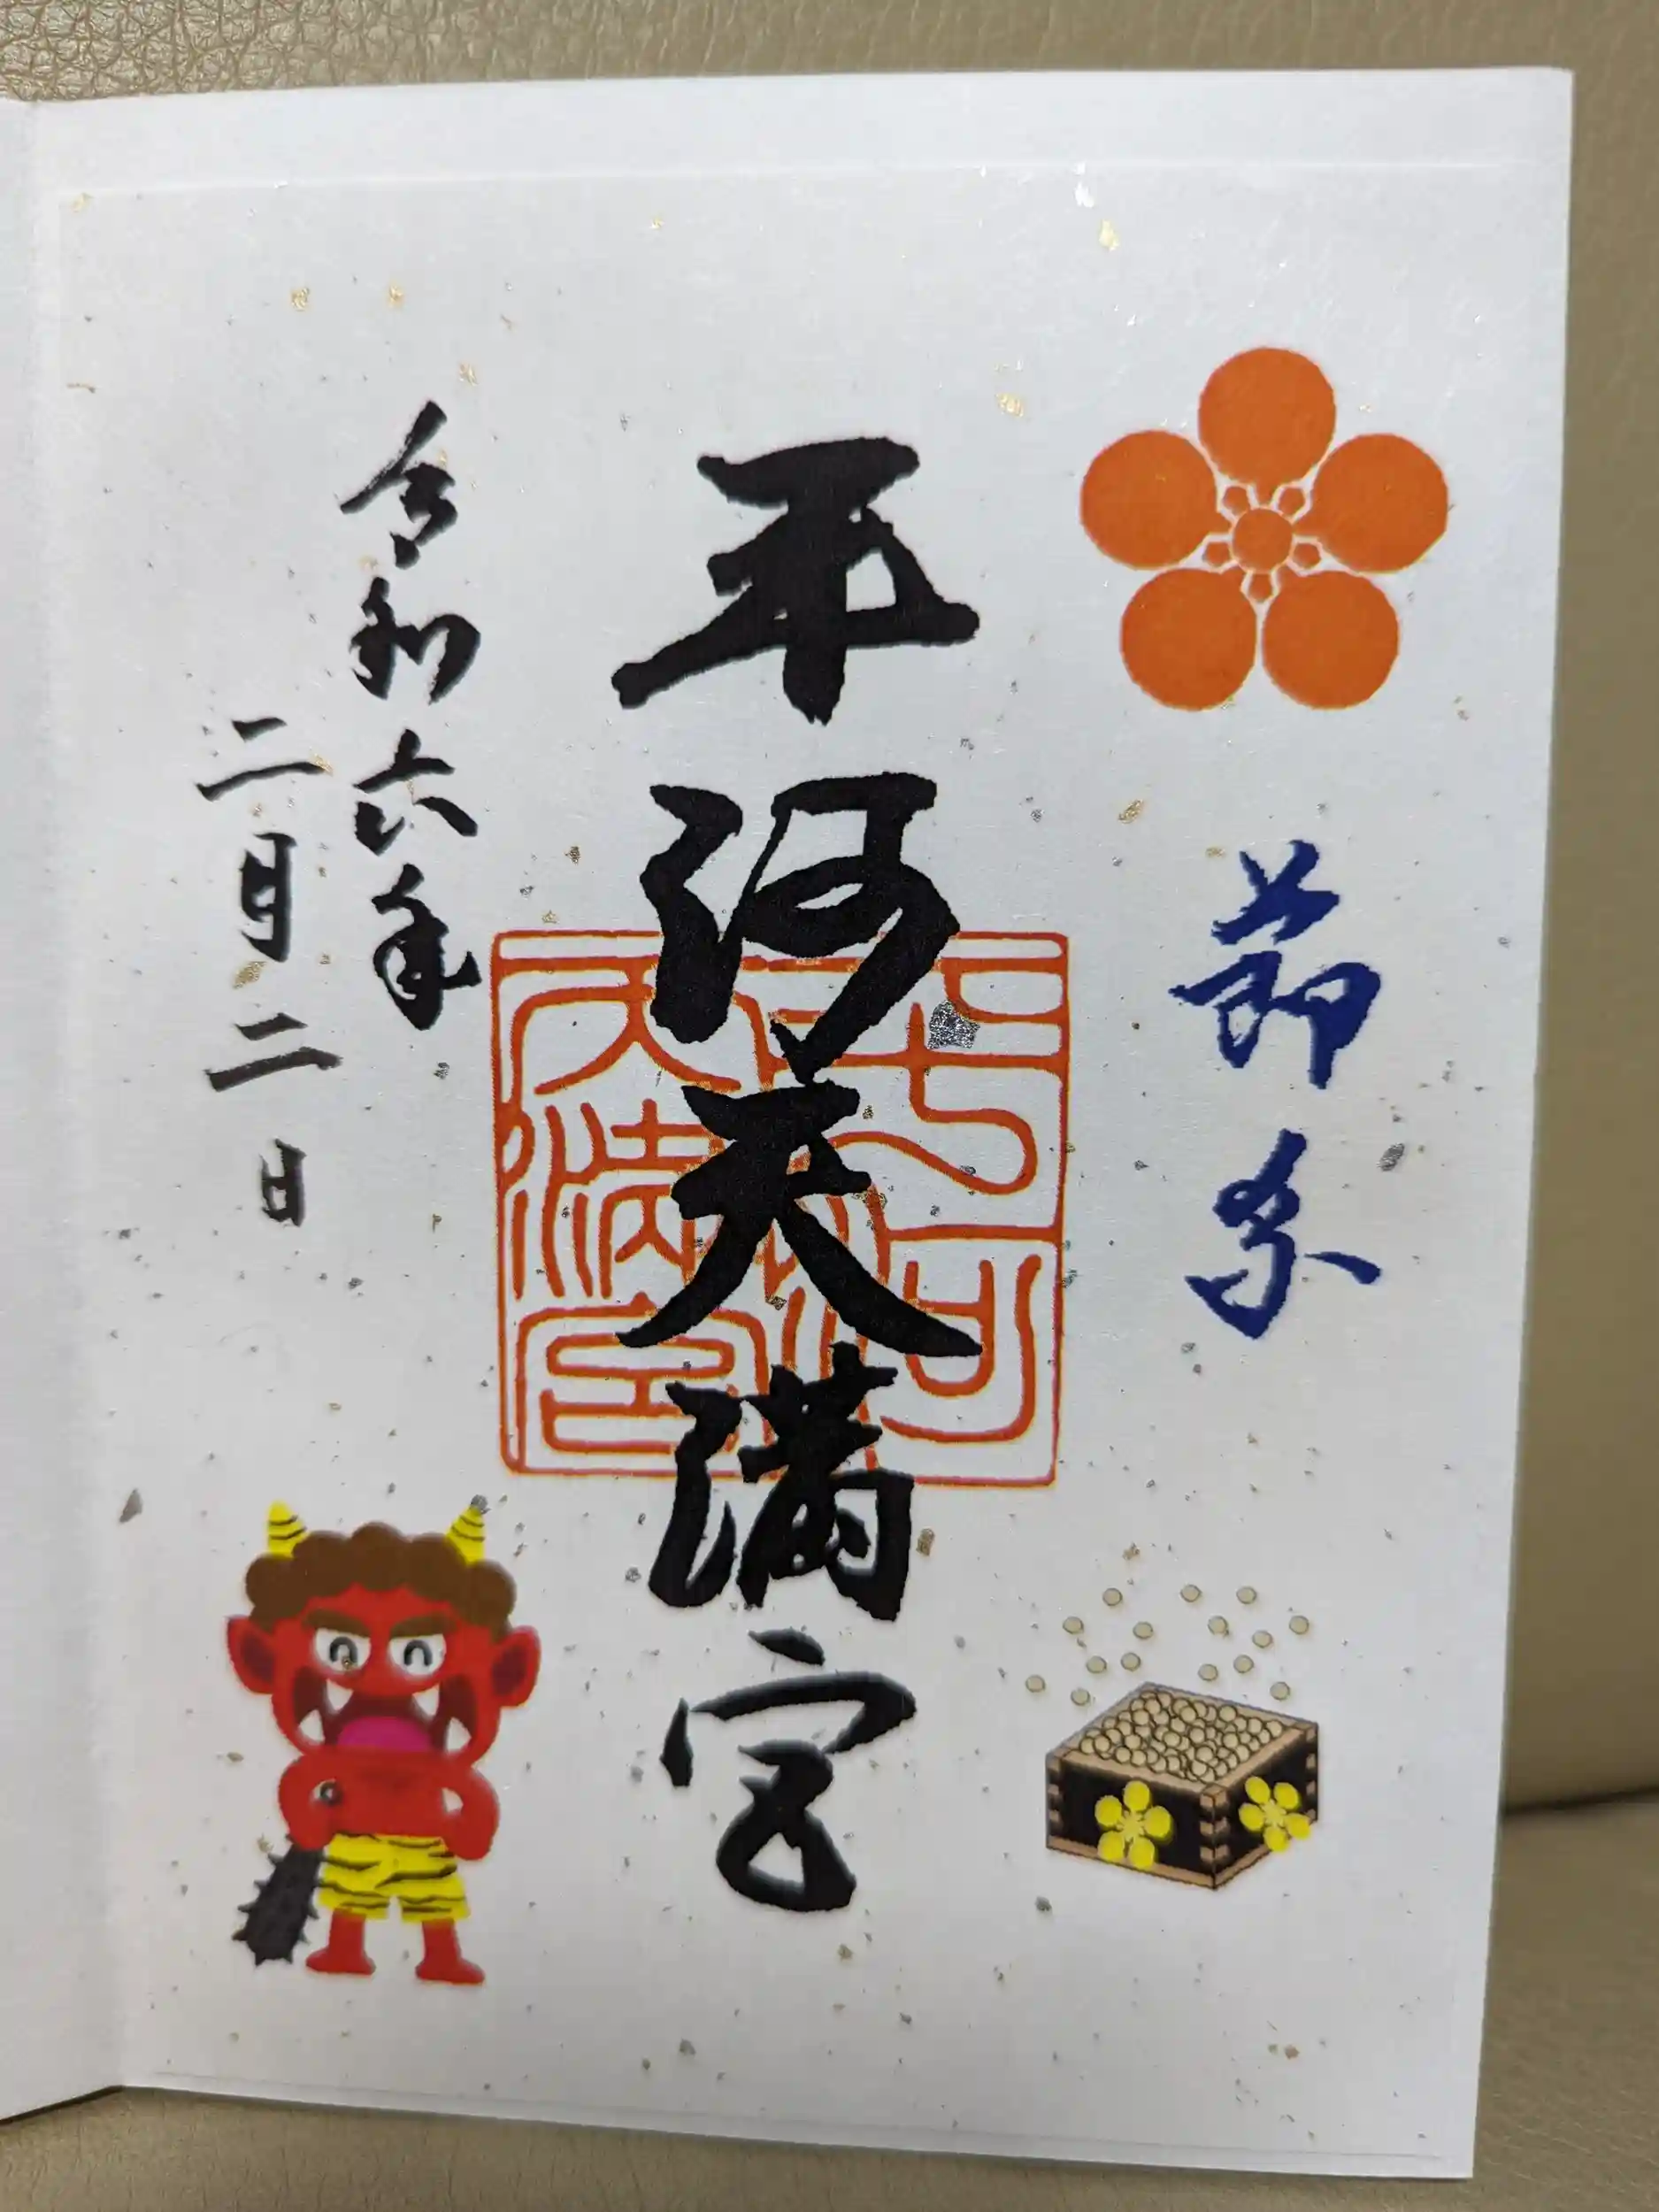 節分
平河天満宮
令和六年
二月二日
平河
天満宮